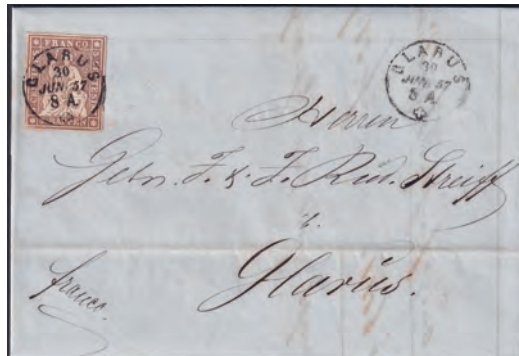 FRANCO
GLARUS
30
JUN 57
8 A.
GLARUS
30
JUN 57
8 A.
Herren
Gebr. F. & J. Rud. Streiff
Glarus.
franco.